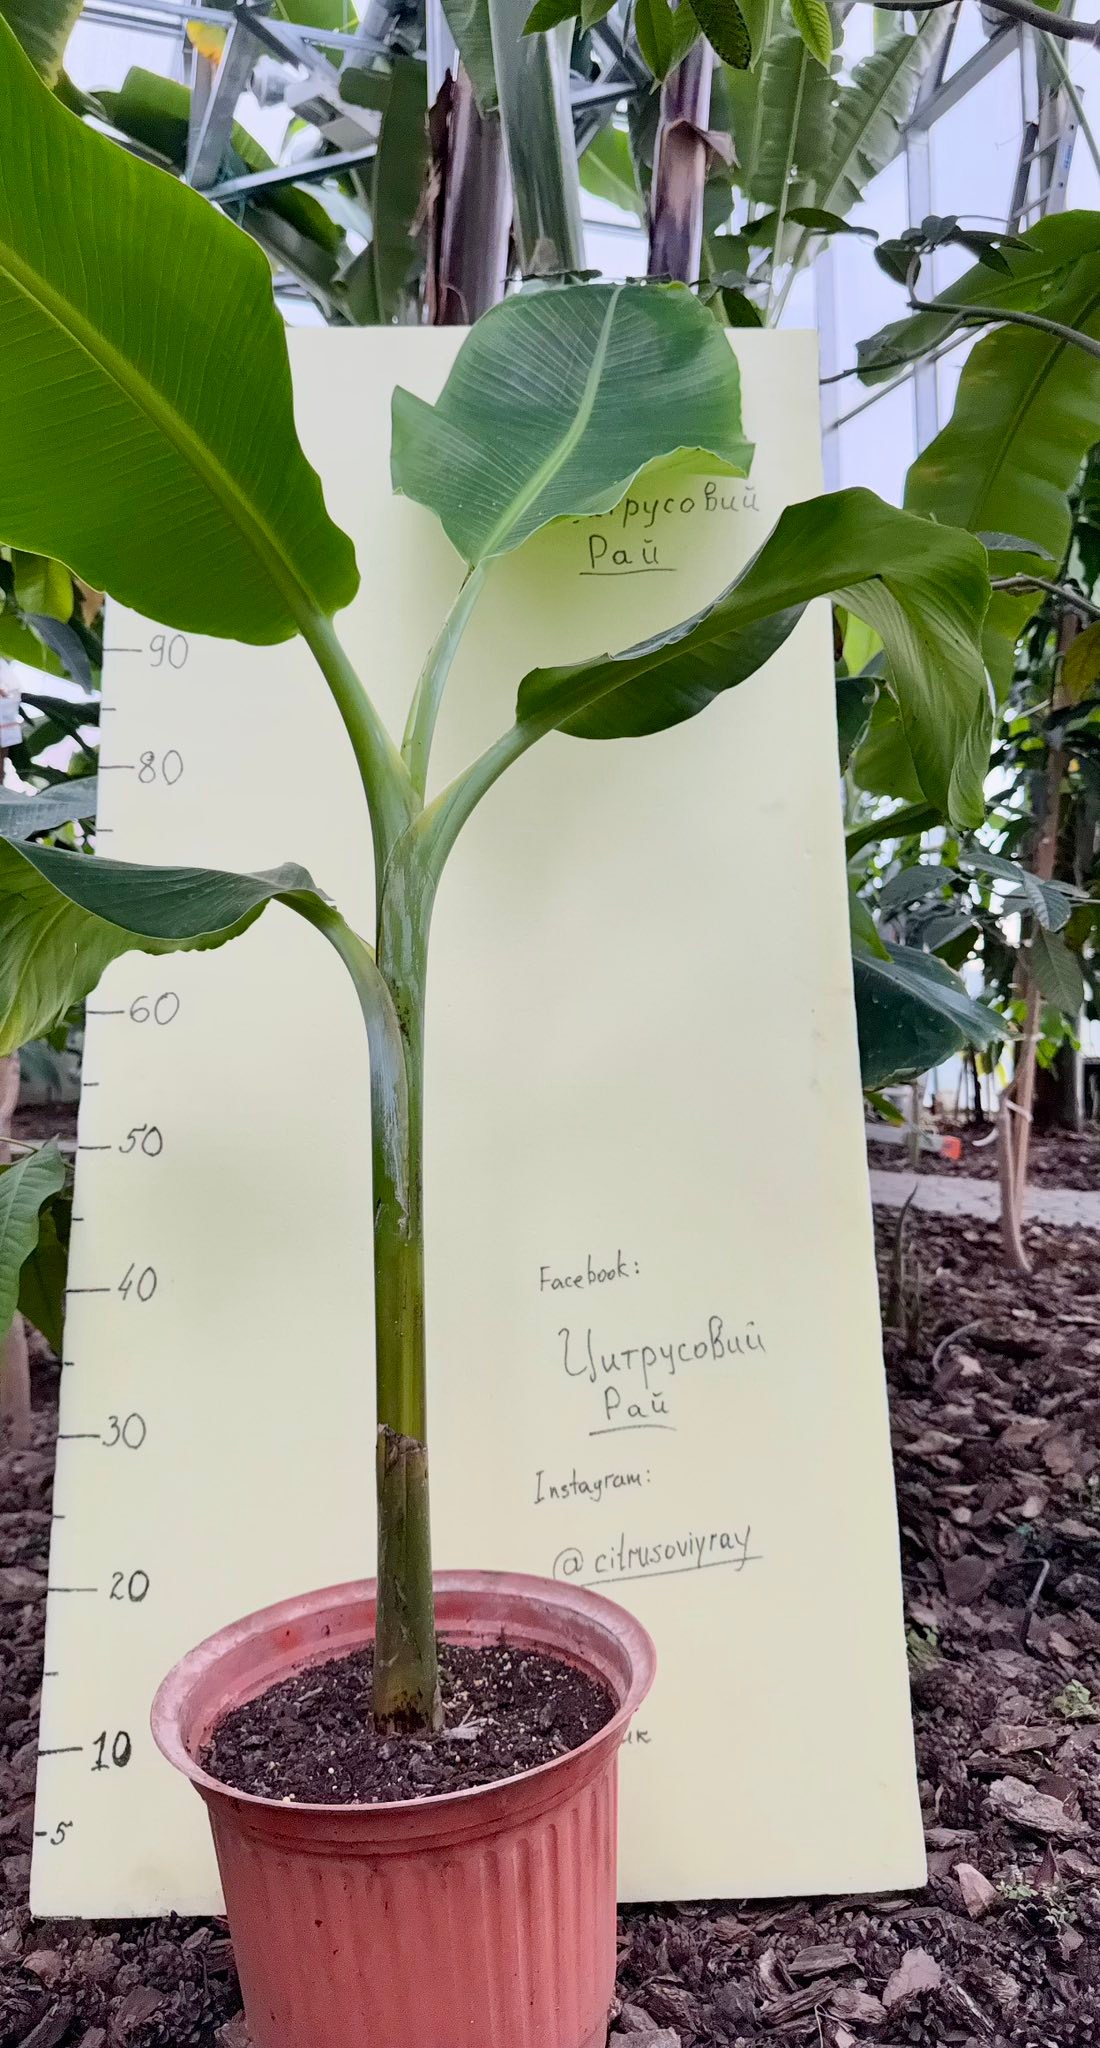 итрусовий
Рай
90
80
60
50
40
30
20
10
5
Facebook:
Цитрусовий
Рай
Instagram:
@citrusoviyray
ик